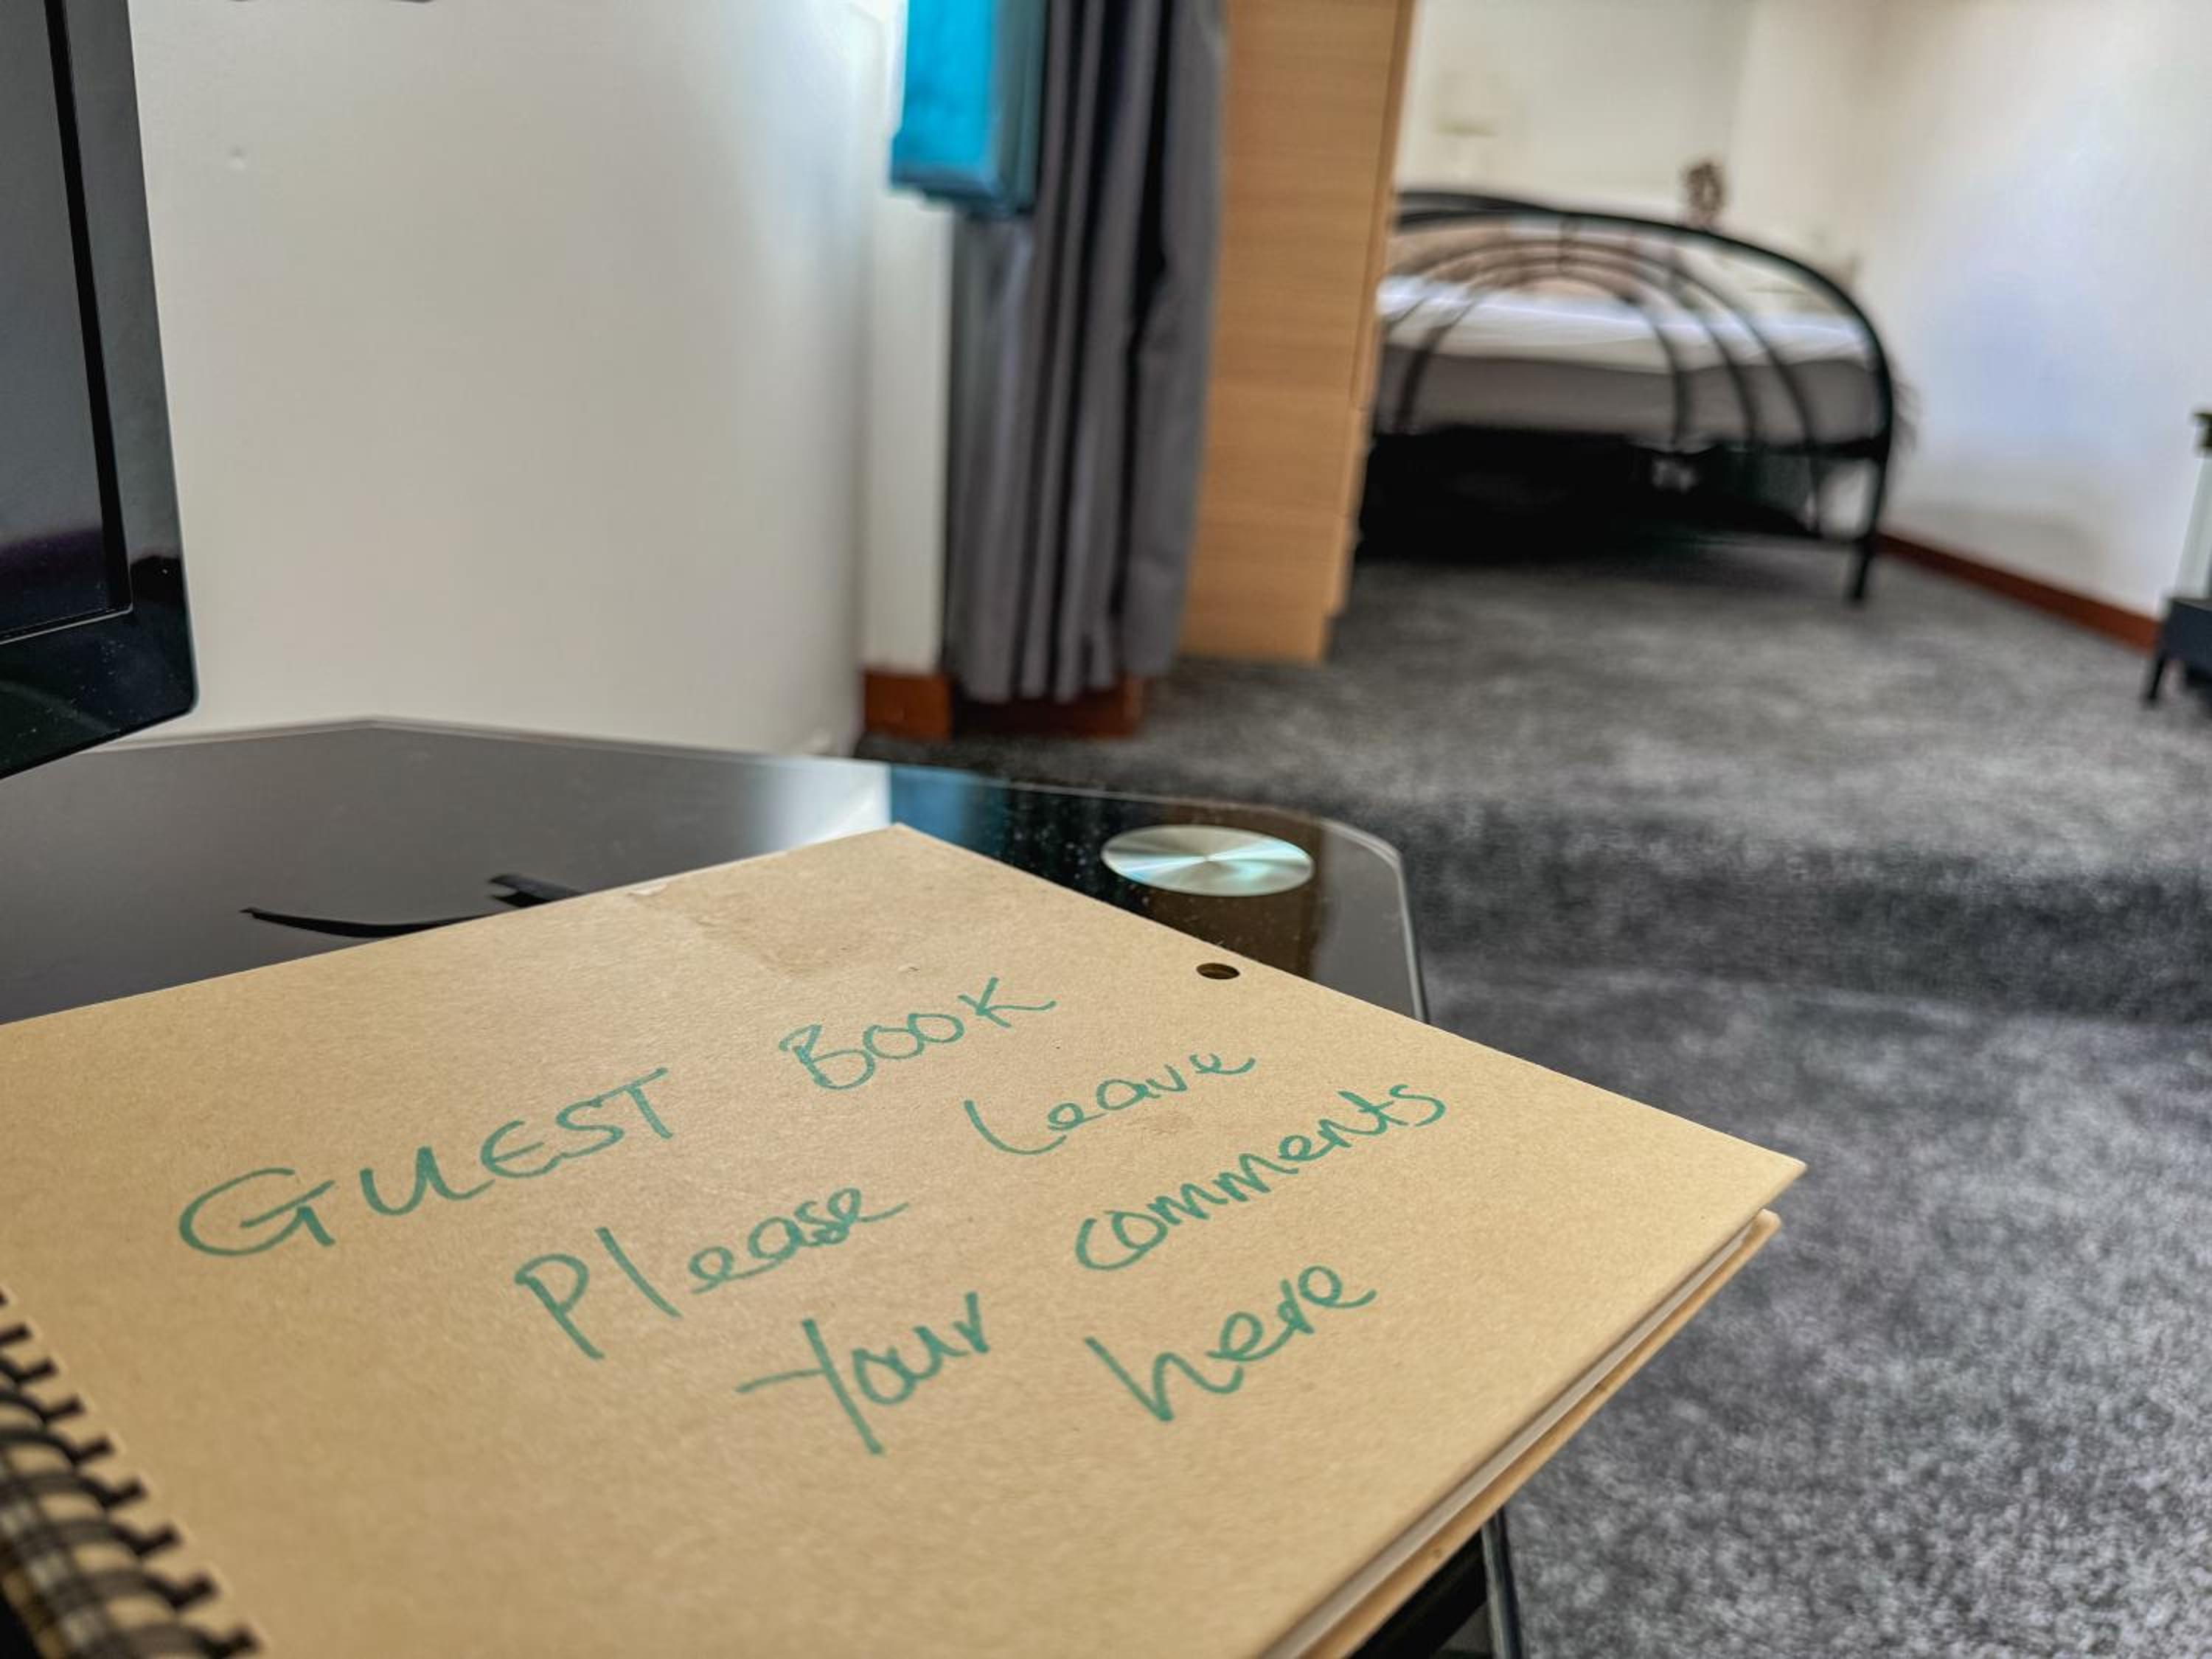 GUEST BOOK
Please Leave
Your comments
here